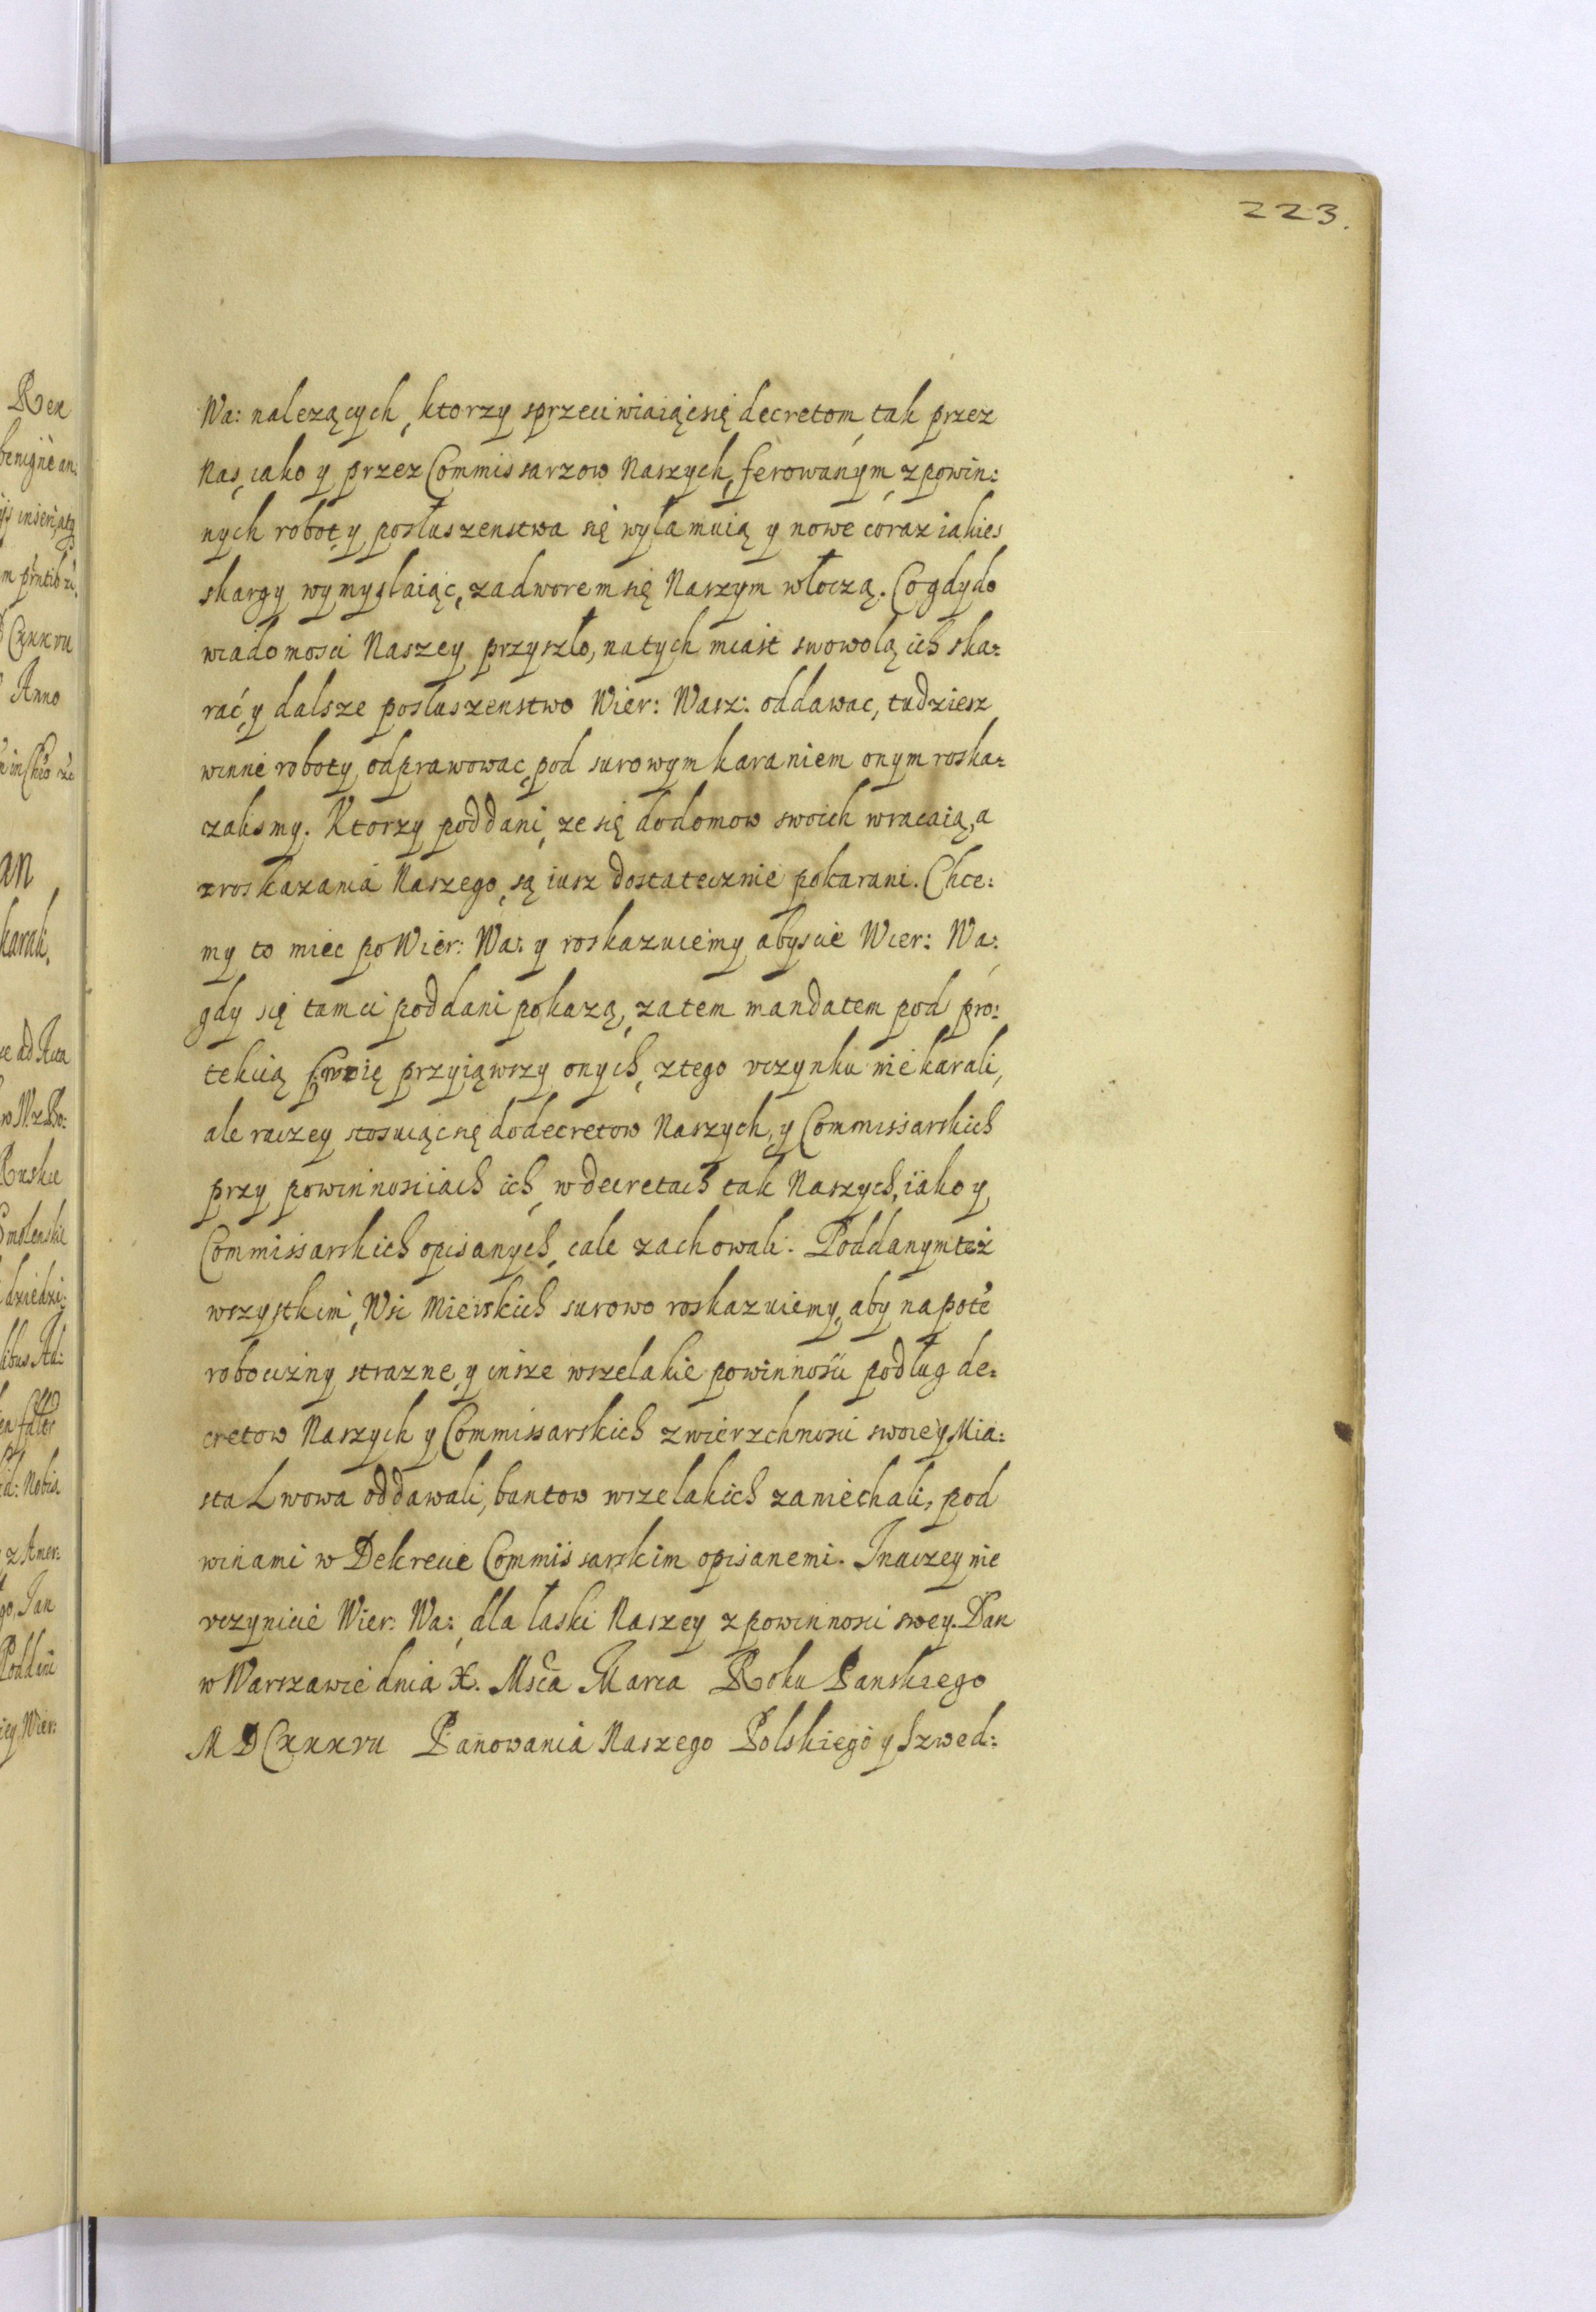 223.
Wa: nalezących, ktorzy sprzeciwiaiąc się decretom, tak przez
Nas, iako y przez Commissarzow Naszych, ferowanym, z powin:
nych robot, y posłuszenstwa się wyłamuią y nowe coraz iakies
skargy wymyslaiąc, za dworem się Naszym włoczą. Co gdy do
wiadomosci Naszey przyszło, natych miast swowolą ich ska:
rać, y dalsze posłuszenstwo Wier: Wasz: oddawac, tudziesz
winne roboty odprawowac, pod surowym karaniem onym roska:
zalismy. Ktorzy poddani, ze się do domow swoich wracaią, a
z roskazania Naszego, są iusz dostatecznie pokarani. Chce:
my to miec po Wier: Wa: y roskazuiemy, abyscie Wier: Wa:
gdy się tamci poddani pokazą, za tem mandatem pod pro:
tekcią przyiąwszy onych, z tego vczynku nie karali,
ale raczey stosuiąc się do decretow Naszych, y Commissarskich
przy powinnosciach ich, w decretach tak Naszych, iako y
Commissarskich opisanych, cale zachowali. Poddanym też
wszystkim, Wsi Mieiskich surowo roskazuiemy, aby na potẽ
robocizny strazne, y insze wszelakie powinnosci podług de:
cretow Naszych y Commissarskich zwierzchnosci swoiey Mia:
sta Lwowa oddawali, buntow wszelakich zaniechali, pod
winami w Dekrecie Commissarskim opisanemi. Inaczey nie
vczynicie Wier: Wa: dla łaski Naszey z powinnosci swey. Dan
w Warszawie dnia X. Msca Marca Roku Panskiego
MDCxxxvii Panowania Naszego Polskiego y Szwed: